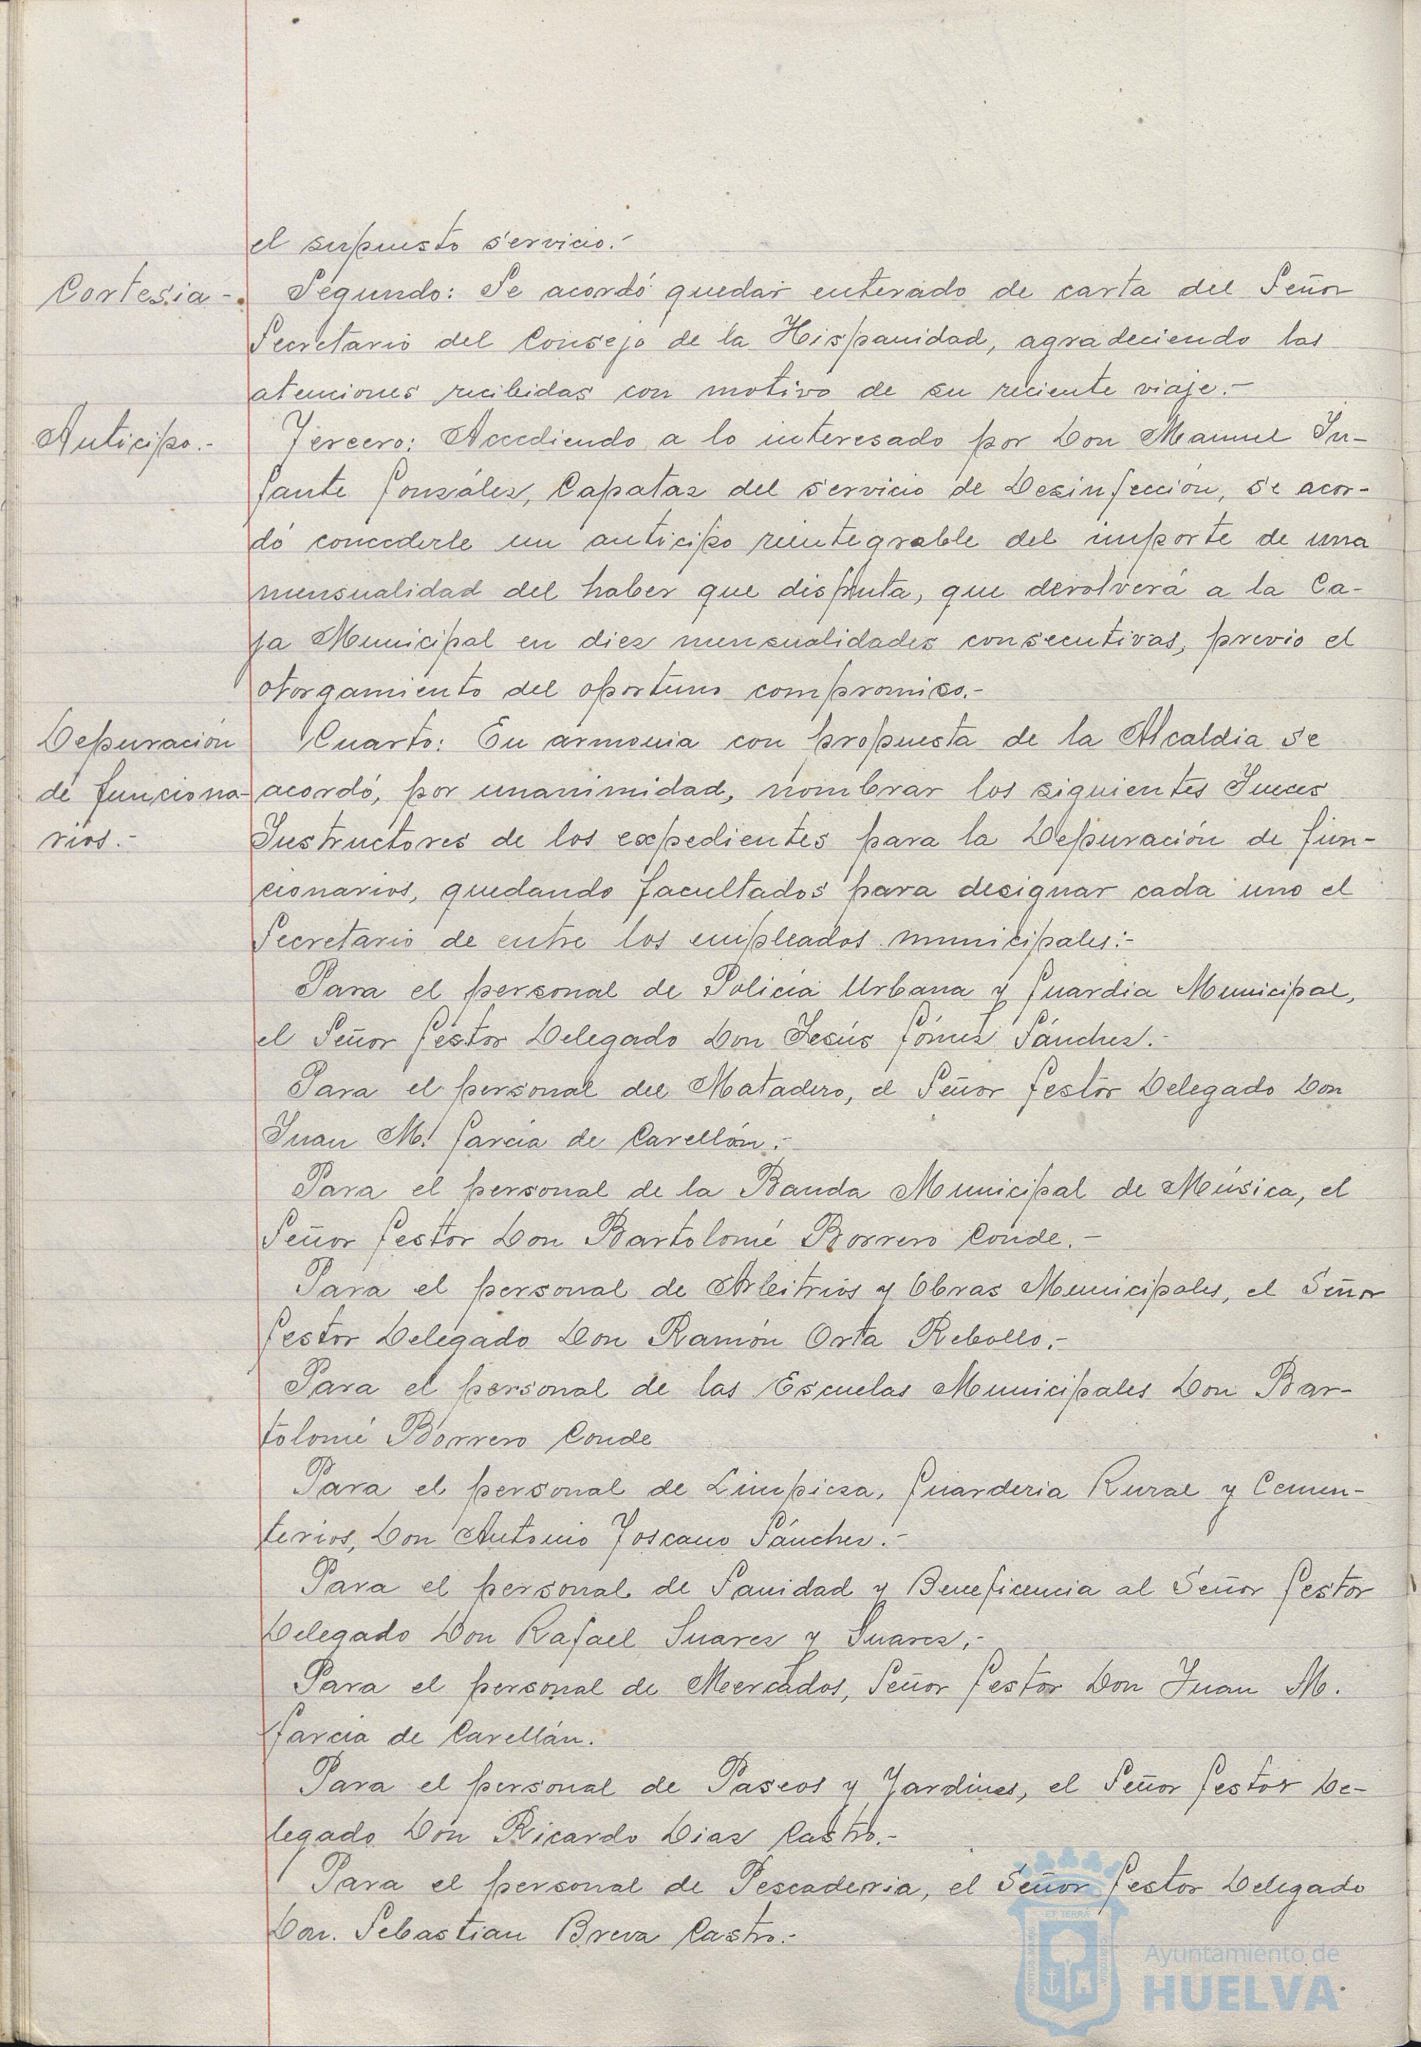 el supuesto servicio.-
Cortesia -
Segundo: Se acordó quedar enterado de carta del Señor
Secretario del Consejo de la Hispanidad, agradeciendo las
atenciones recibidas con motivo de su reciente viaje.-
Anticipo.-
Tercero: Accediendo a lo interesado por Don Manuel In-
fante González, Capataz del servicio de Desinfección, se acor-
dó concederle un anticipo reintegrable del importe de una
mensualidad del haber que disfruta, que devolverá a la Ca-
ja Municipal en diez mensualidades consecutivas, previo el
otorgamiento del oportuno compromiso.-
Depuración
de funciona-
rios.-
Cuarto: En armonia con propuesta de la Alcaldia se
acordó, por unanimidad, nombrar los siguientes Jueces
Instructores de los expedientes para la Depuración de fun-
cionarios, quedando facultados para designar cada uno el
Secretario de entre los empleados municipales:-
Para el personal de Policia Urbana y Guardia Municipal,
el Señor Gestor Delegado Don Jesús Gómez Sánchez.-
Para el personal del Matadero, el Señor Gestor Delegado Don
Juan M. Garcia de Carellán.-
Para el personal de la Banda Municipal de Música, el
Señor Gestor Don Bartolomé Borrero Conde.-
Para el personal de Arbitrios y Obras Municipales, el Señor
Gestor Delegado Don Ramón Orta Rebollo.-
Para el personal de las Escuelas Municipales Don Bar-
tolomé Borrero Conde
Para el personal de Limpieza, Guarderia Rural y Cemen-
terios, Don Antonio Toscano Sánchez.-
Para el personal de Sanidad y Beneficencia al Señor Gestor
Delegado Don Rafael Suarez y Suarez.-
Para el personal de Mercados, Señor Gestor Don Juan M.
Garcia de Carellán.
Para el personal de Paseos y Jardines, el Señor Gestor De-
legado Don Ricardo Diaz Castro.-
Para el personal de Pescaderia, el Señor Gestor Delegado
Don. Sebastian Breva Castro.-
Ayuntamiento de
HUELVA